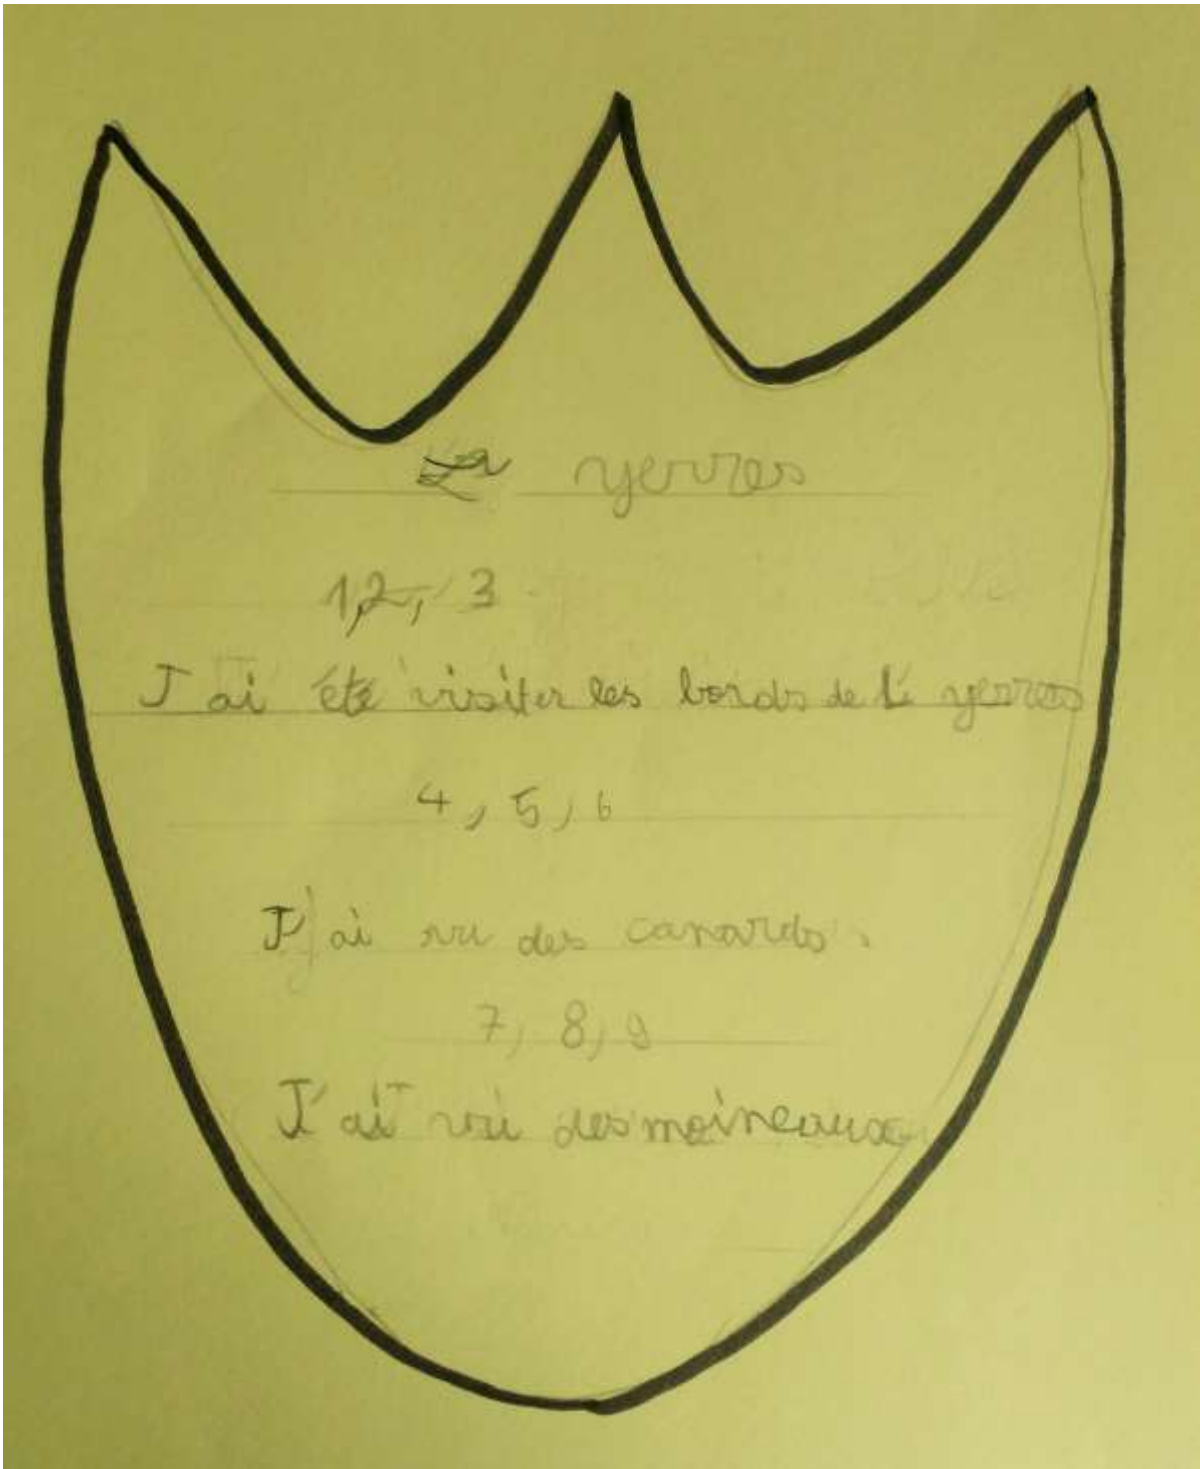 La yerres
1, 2, 3
J'ai été visiter les bords de l' yerres
4, 5, 6
J'ai vu des canards.
7, 8, 9
J'ai vu des moineaux